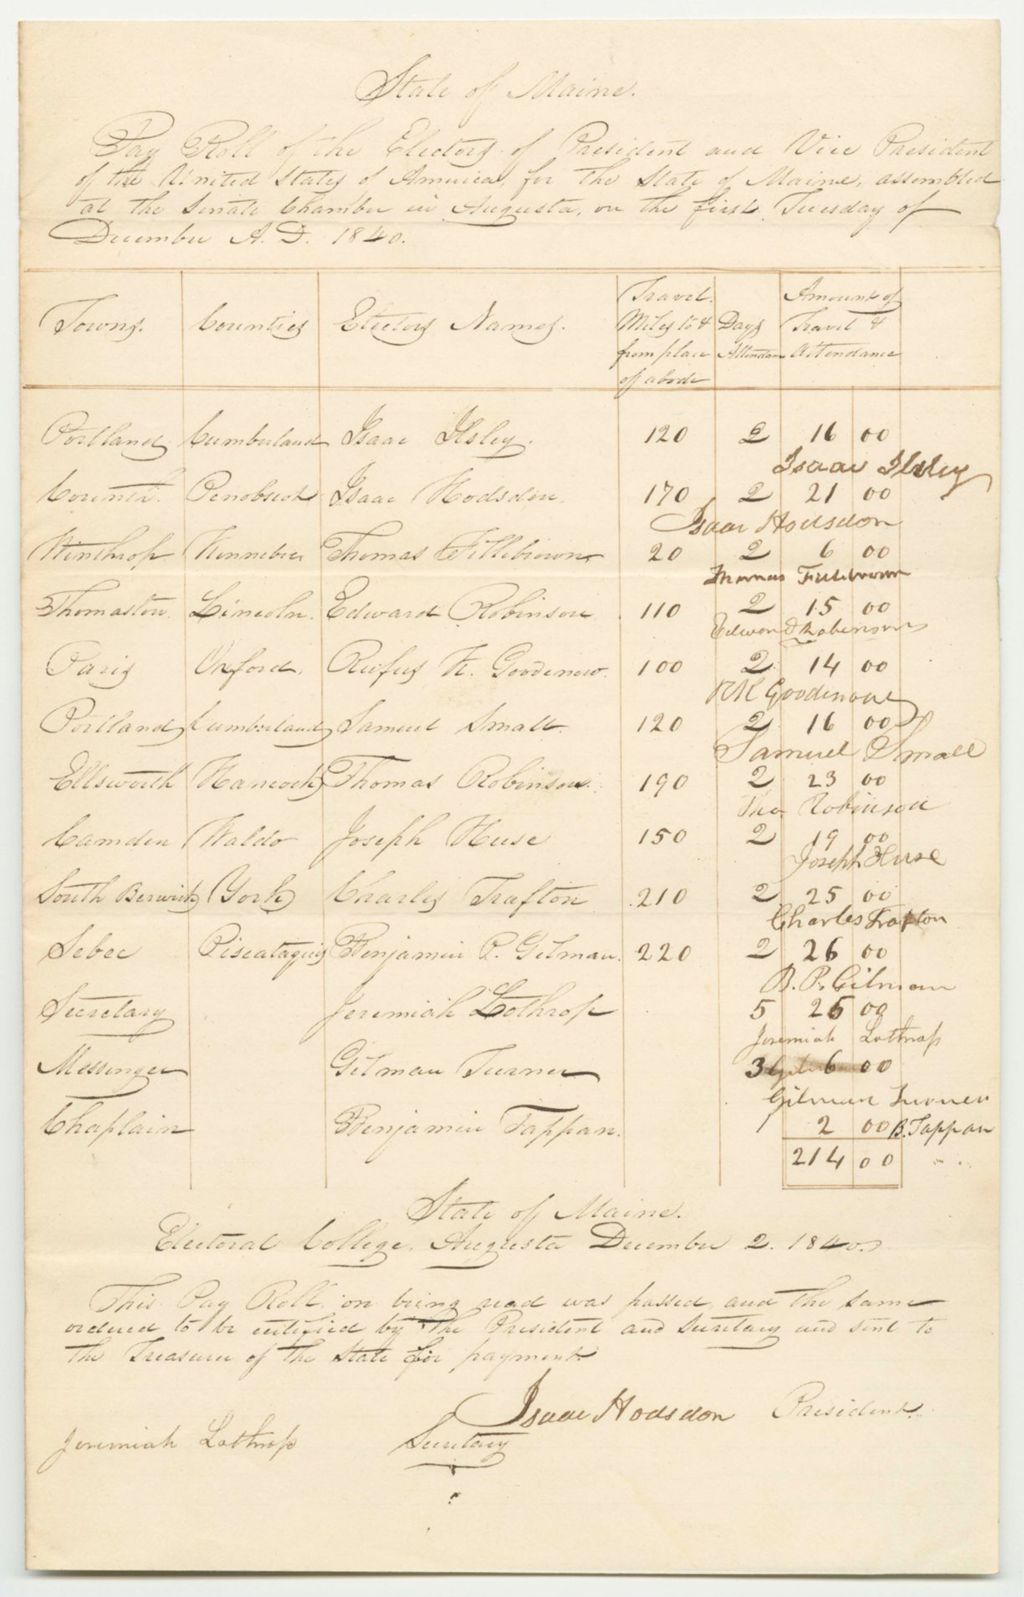 State of Maine.
Pay Roll of the Electors of President and Vice President
of the United States of America, for the State of Maine, assembled
at the Senate Chamber in Augusta, on the first Tuesday of
December A. D. 1840.
Towns. Counties Electors Names. Travel. Miles to & from place of abode Days Attendance Amount of Travel & Attendance
Portland Cumberland Isaac Ilsley. 120 2 16 00
Isaac Ilsley
Corinth. Penobscot Isaac Hodsdon. 170 2 21 00
Isaac Hodsdon
Winthrop Kennebec Thomas Fillebrown 20 2 6 00
Thomas Fillebrown
Thomaston Lincoln. Edward Robinson 110 2 15 00
Edward Robinson
Paris Oxford. Rufus K. Goodenow. 100 2 14 00
R K Goodenow
Portland Cumberland Samuel Small 120 2 16 00
Samuel Small
Ellsworth Hancock Thomas Robinson. 190 2 23 00
Tho Robinson
Camden Waldo Joseph Huse 150 2 19 00
Joseph Huse
South Berwick York Charles Trafton 210 2 25 00
Charles Trafton
Sebec Piscataquis Benjamin P. Gilman. 220 2 26 00
B. P. Gilman
Secretary Jeremiah Lothrop 5 25 00
Jeremiah Lothrop
Messenger Gilman Turner 3 6 00
Gilman Turner
Chaplain Benjamin Tappan. 1 2 00 B. Tappan
214 00
State of Maine.
Electoral College, Augusta December 2. 1840.
This Pay Roll, on being read was passed, and the same
ordered to be certified by the President and Secretary and sent to
the Treasurer of the State for payment.
Isaac Hodsdon President.
Jeremiah Lothrop Secretary